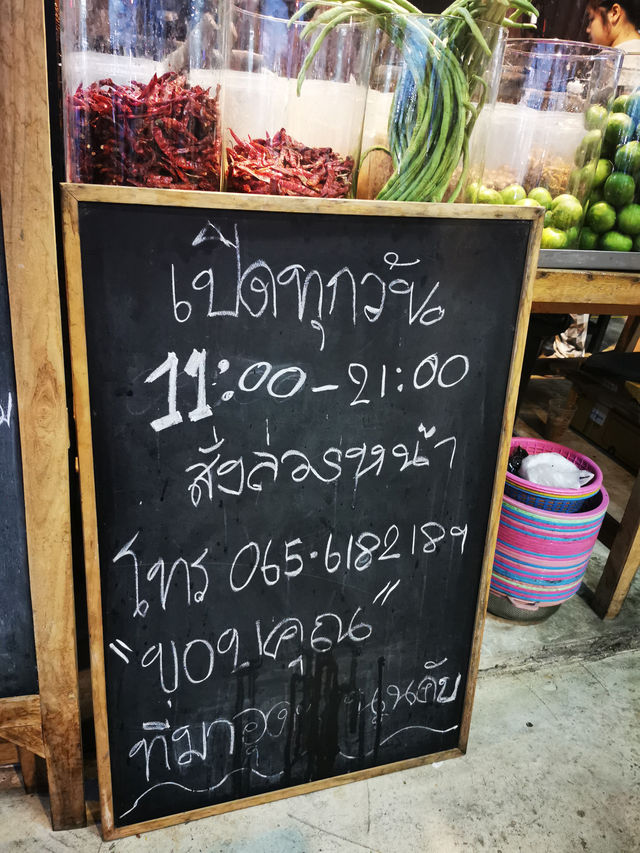 เปิดทุกวัน
11:00-21:00
สั่งล่วงหน้า
โทร 065-6182189
"ขอบคุณ"
ที่มาอุดหนุนคับ